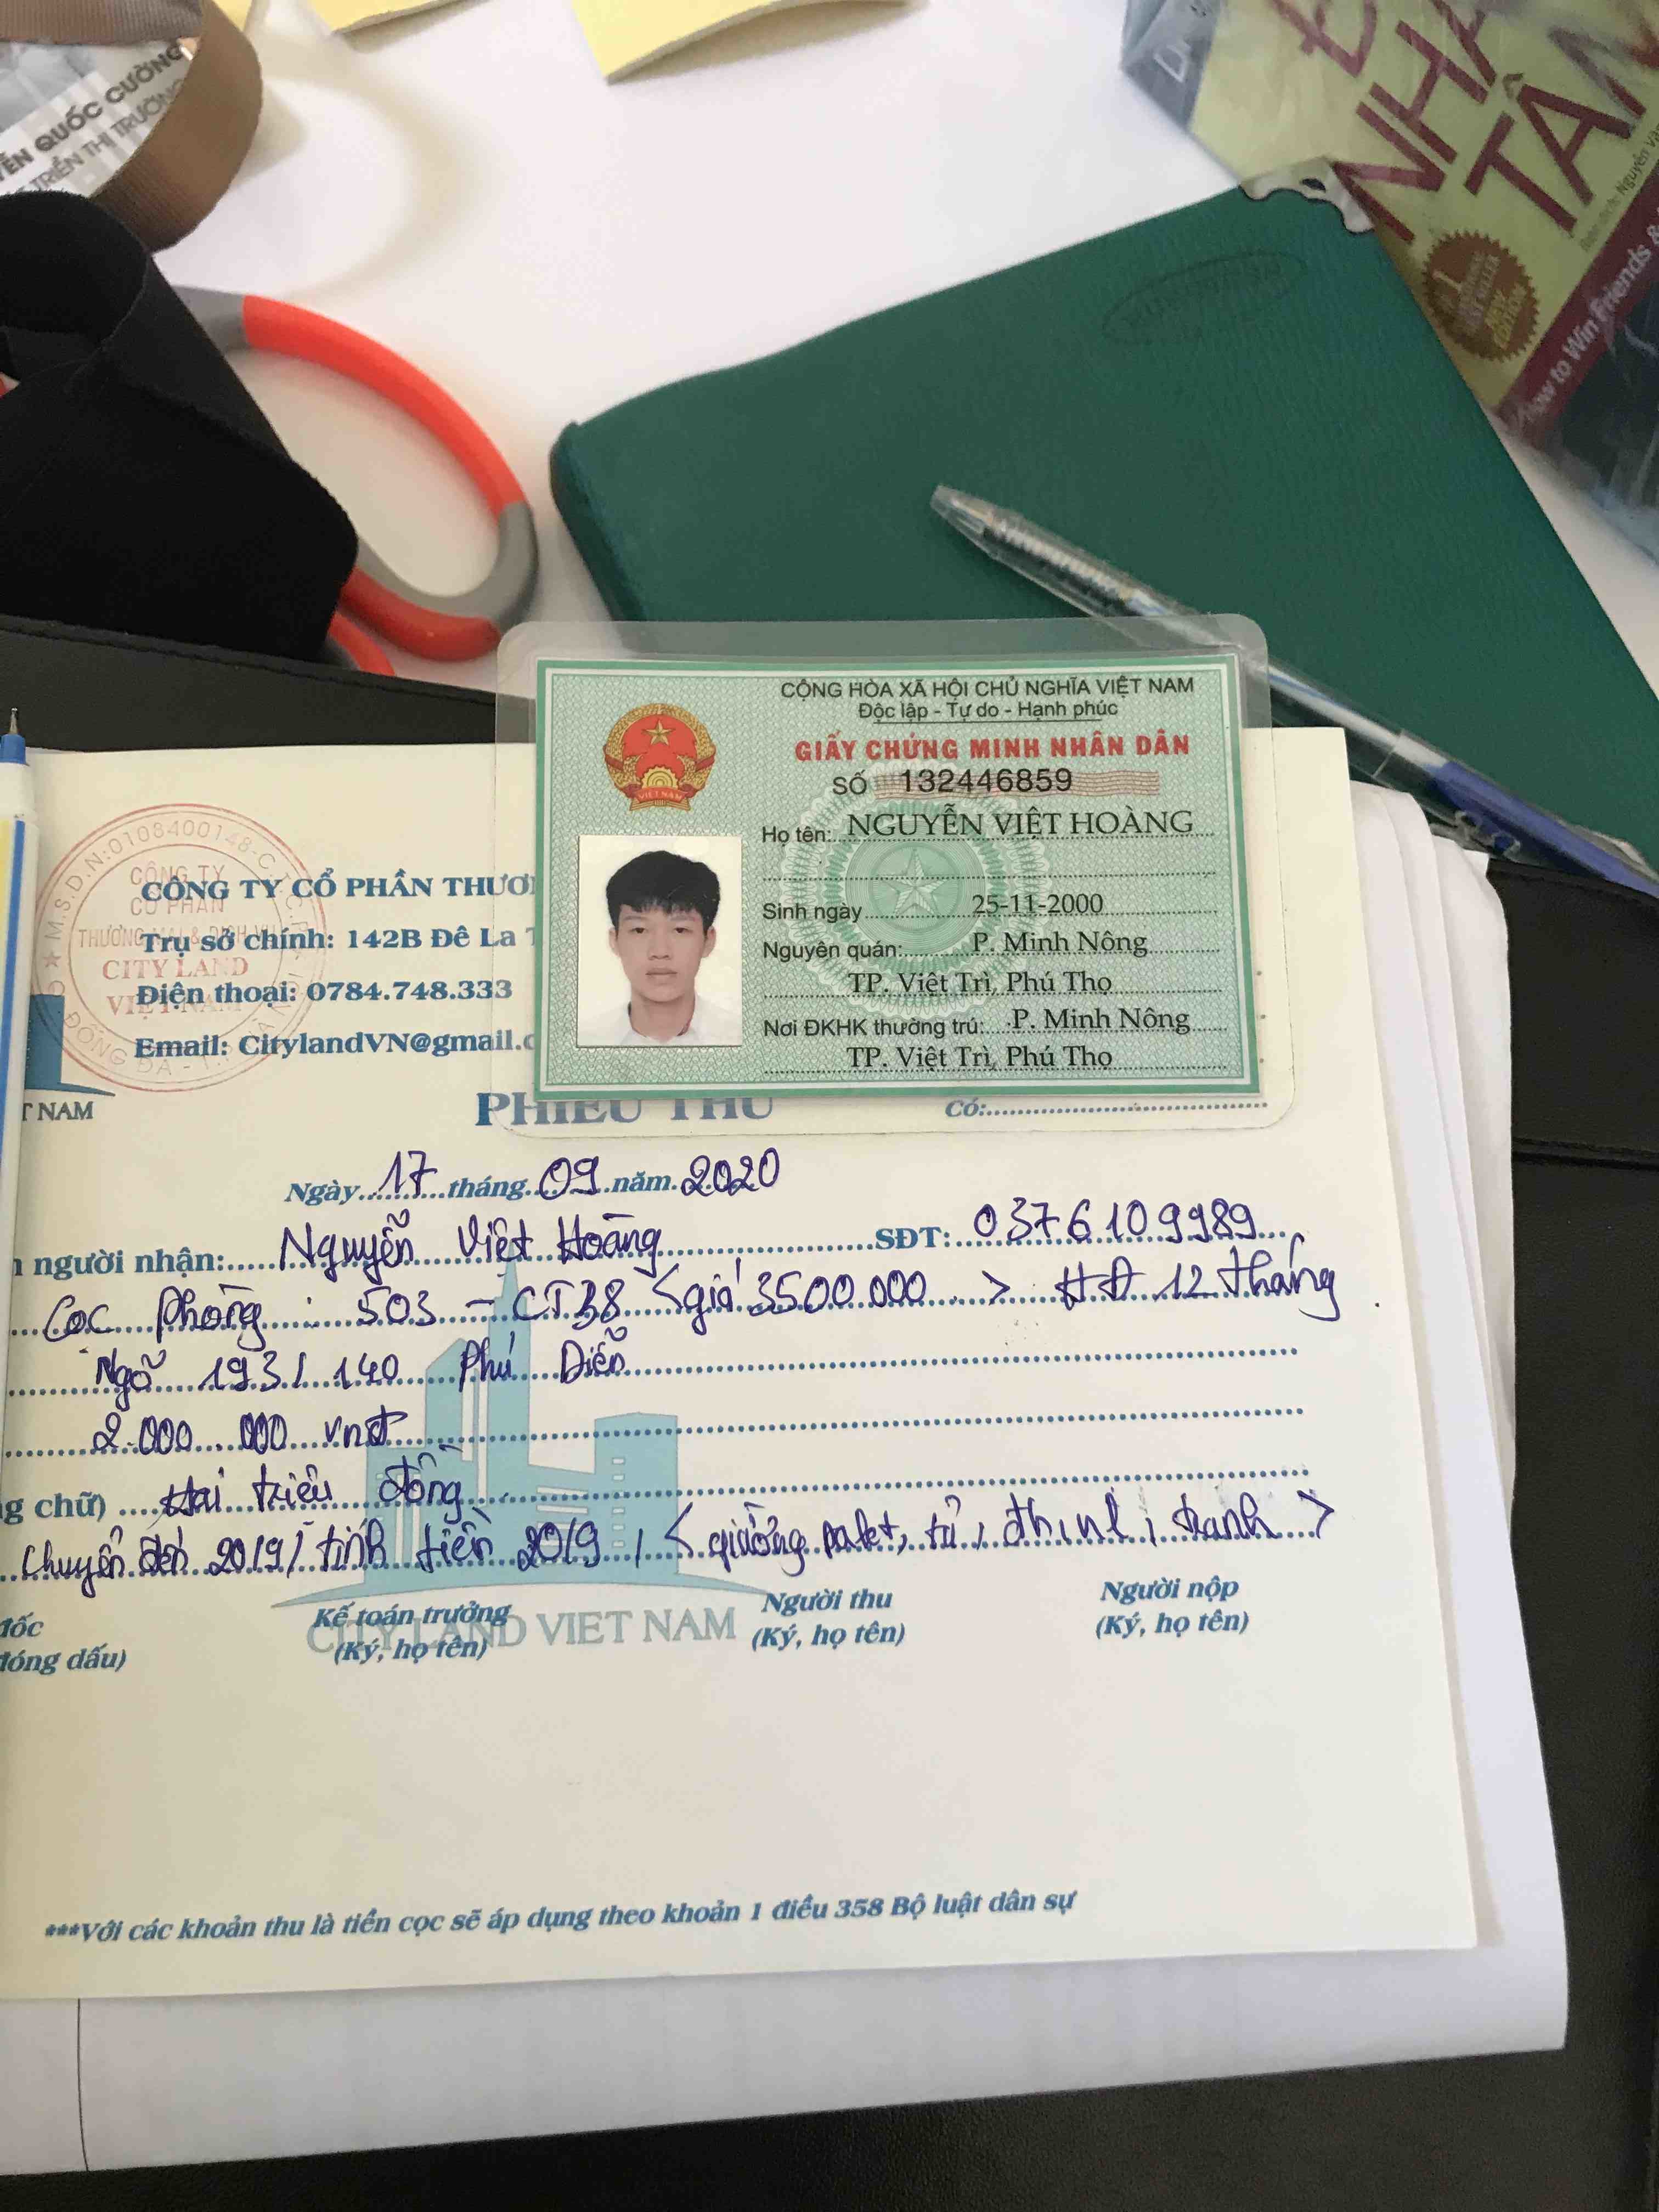 QUỐC CƯỜNG
TRIỂN THỊ TRƯỜNG
NHÂ
TÂM
#1
How to Win Friends &
CỘNG HÒA XÃ HỘI CHỦ NGHĨA VIỆT NAM
Độc lập - Tự do - Hạnh phúc
GIẤY CHỨNG MINH NHÂN DÂN
SỐ 132446859
Họ tên: NGUYỄN VIỆT HOÀNG
Sinh ngày 25-11-2000
Nguyên quán: P. Minh Nông
TP. Việt Trì, Phú Thọ
Nơi ĐKHK thường trú: P. Minh Nông
TP. Việt Trì, Phú Thọ
VIỆT NAM
M.S.D.N:0108400148-C.T.C.P
CÔNG TY
CỔ PHẦN
CITY LAND
VIỆT NAM
CÔNG TY CỔ PHẦN THƯƠ
Trụ sở chính: 142B Đê La T
Điện thoại: 0784.748.333
Email: CitylandVN@gmail.c
T NAM
PHIẾU THU
Có:
Ngày 17 tháng 09 năm 2020
người nhận: Nguyễn Việt Hoàng SĐT: 0376109989
Cọc Phòng : 503 - CT38 <giá 3500.000 > HĐ 12 tháng
Ngõ 193/140 Phú Diễn
2.000.000 vnđ
g chữ) Hai triệu đồng
Chuyển đến 20/9/ tính tiền 20/9 , < giường palet, tủ, tranh >
đốc
đóng dấu)
Kế toán trưởng
(Ký, họ tên)
Người thu
(Ký, họ tên)
Người nộp
(Ký, họ tên)
CITY LAND VIET NAM
***Với các khoản thu là tiền cọc sẽ áp dụng theo khoản 1 điều 358 Bộ luật dân sự